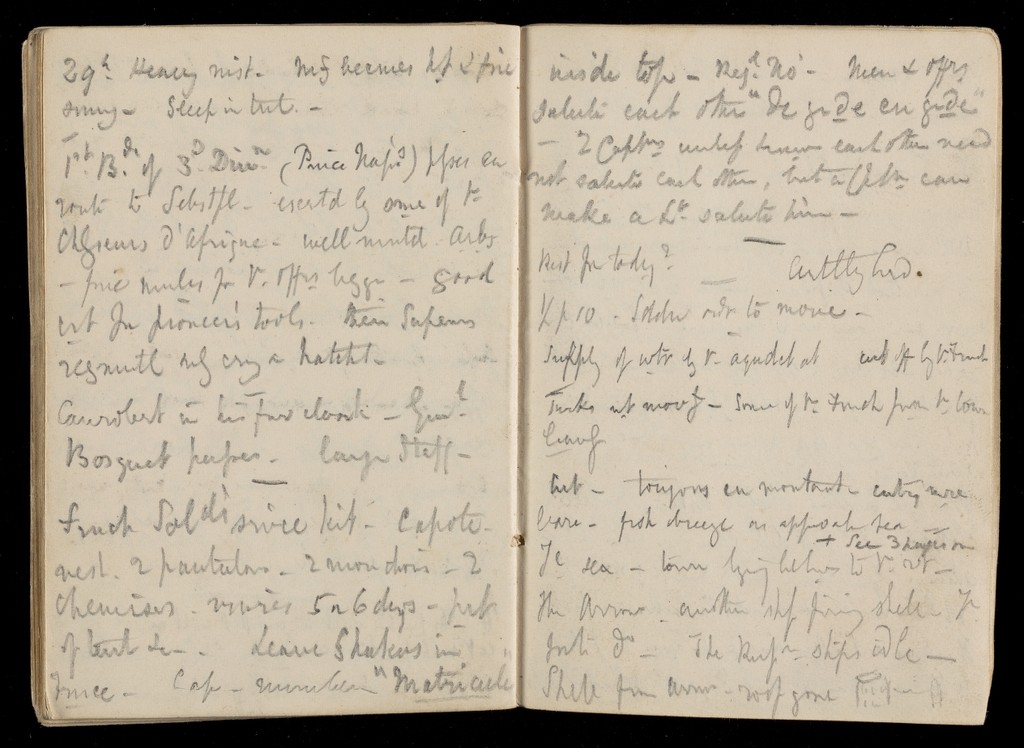 29th Heavy mist. Mg becomes hf & fine
sunny - Sleep in tent. -
1st Bde of 3d Divn (Prince Nap's) passes en
route to Sebstpl - escrtd by some of Ve
Chsseurs d'Afrique - well mntd Arbs
- fine mules for Ve offrs bagge - good
crt for pioneer's tools. their Sapeurs
regmntl only cry a hatcht -
Canrobert in his fur cloak - Genl
Bosquet passes - large Staff -
French Sold's srvice kit - Capote -
vest. 2 pantalons - 2 mouchoirs - 2
Chemises - vivres 5 or 6 days - part
of tent &c - Leave Shakos in
Frnce - Cap - number "Matricule
inside top - Regtl No - Men & offrs
salute each other "de grade en grade"
- 2 Captns unless know each other need
not salute each other, but a Cptn can
make a Lt salute him -
Rest for today?
1/2 p 10 - Soldrs ordr to move -
Supply of wtr by Ve aquedct at cut off by Ve French
Turks not movg - Some of Ve French from Ve town
leavg
- toujours en montant - cntry more
bare - fresh breeze as approach sea -
+ See 3 pages on
Ye sea - town lying below to Ve rt -
The Arrow another shp firing shell
forts do - The Russn ships idle -
Shells from Arrow - roof gone